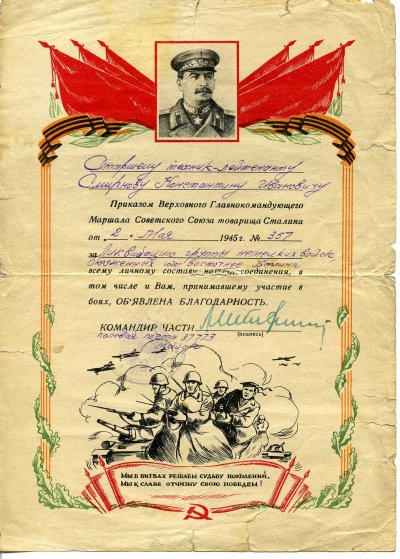 Старшему технику-лейтенанту
Смирнову Константину Ивановичу
Приказом Верховного Главнокомандующего
Маршала Советского Союза товарища Сталина
от "2" Мая 1945 г. № 357
за Ликвидацию группы немецких войск
окруженных юго-восточнее Берлина
всему личному составу нашего соединения, в
том числе и Вам, принимавшему участие в
боях, ОБ'ЯВЛЕНА БЛАГОДАРНОСТЬ.
КОМАНДИР ЧАСТИ
(подпись)
полевая почта 37773
МЫ В БИТВАХ РЕШАЕМ СУДЬБУ ПОКОЛЕНИЙ,
МЫ К СЛАВЕ ОТЧИЗНУ СВОЮ ПОВЕДЕМ!